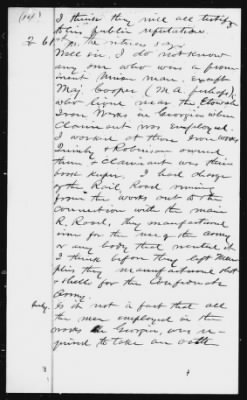 I think they will all testify
to his public reputation.
2 61
Well sir, I do not know
any one who was a prom-
inent Union man, except
Maj Cooper (M.A. perhaps),
who lived near the Etowah
Iron Works in Georgia when
Claimant was employed.
I worked at those Iron works,
Quinby & Robinson owned
them & claimant was their
book keeper. I had charge
of the Rail Road running
from the works out to the
connection with the main
R. Road, they manufactured
iron for the use of the army
or any body that wanted it.
I think before they left Mem-
phis they manufactured shot
& shells for the Confederate
Army.
Is it not a fact that all
the men employed in the
works in Georgia, were re-
quired to take an oath